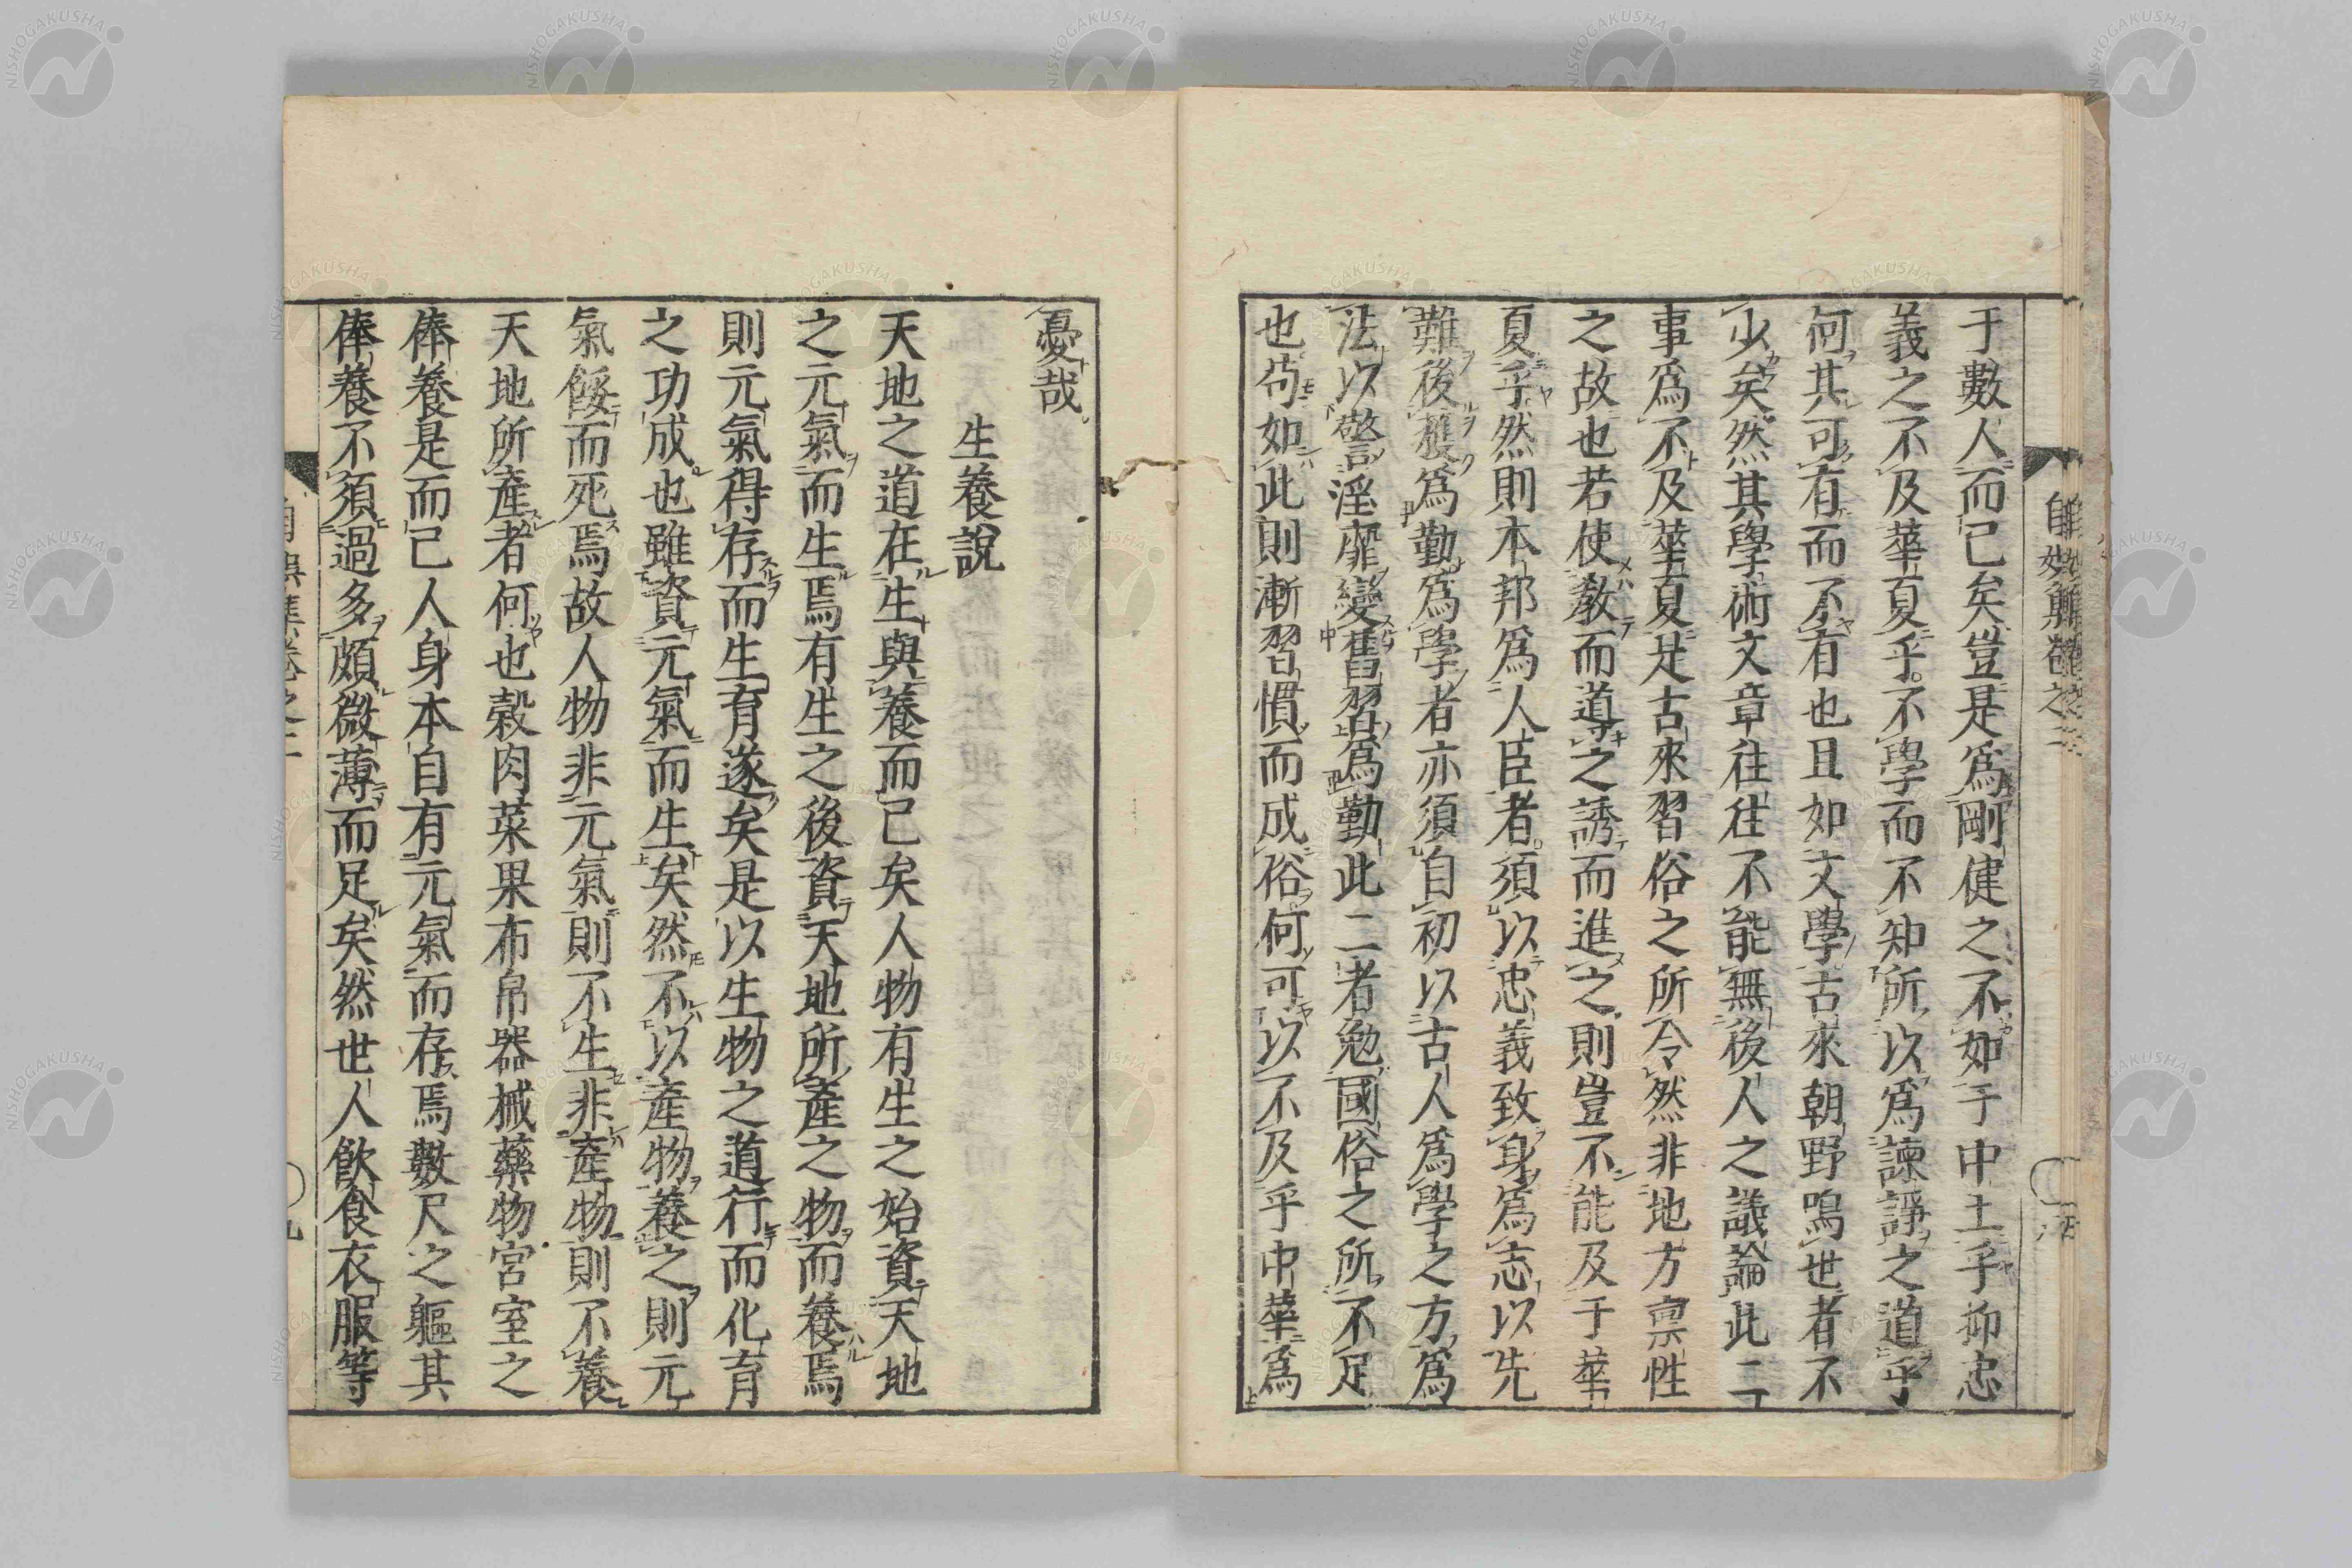 于數人而已矣豈是爲剛健之不如于中土乎抑忠
義之不及華夏乎不學而不知所以爲諫諍之道乎
何其可有而不有也且如文學古來朝野鳴世者不
少矣然其學術文章往往不能無後人之議論此二
事爲不及華夏是古來習俗之所令然非地方稟性
之故也若使教而道之誘而進之則豈不能及于華
夏乎然則本邦爲人臣者須以忠義致身爲志以先
難後獲爲勤爲學者亦須自初以古人爲學之方爲
法以警淫靡變舊習爲勤此二者勉國俗之所不足
也苟如此則漸習慣而成俗何可以不及乎中華爲
憂哉
生養說
天地之道在生與養而已矣人物有生之始資天地
之元氣而生焉有生之後資天地所產之物而養焉
則元氣得存而生育遂矣是以生物之道行而化育
之功成也雖資元氣而生矣然不以產物養之則元
氣餒而死焉故人物非元氣則不生非產物則不養
天地所產者何也穀肉菜果布帛器械藥物宮室之
俸養是而已人身本自有元氣而存焉數尺之軀其
俸養不須過多頗微薄而足矣然世人飲食衣服等
九
NISHOGAKUSHA